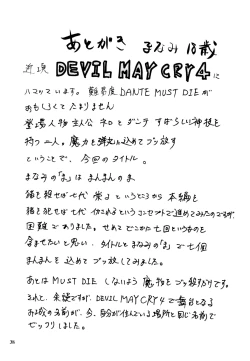 あとがき まなみ 18歳
近頃 DEVIL MAY CRY 4 に
ハマっています。難易度 DANTE MUST DIE が
おもしろくてたまりません
登場人物主人公 ネロとダンテ すばらしい神技を
持つ一人。魔力を弾丸に込めてブッ放す
ということで、今回のタイトル。
まなみの「ま」は まんまんの ま
猫を殺せば七代 祟る というところから 本編を
猫を犯せば七代 というコンセプトで進めてみたのですが、
困難でありました。せめてどこかに七回というものを
含ませたいと思い、タイトルとまなみの「ま」で七個
まんまんを 込めて ブッ放してみました。
あとは MUST DIE しないよう 魔物をブッ殺すだけです。
されど、余談ですが、DEVIL MAY CRY 4 で舞台となる
お城の名前が、今、自分が住んでいる場所と同じ名前で
ビックリしました。
36